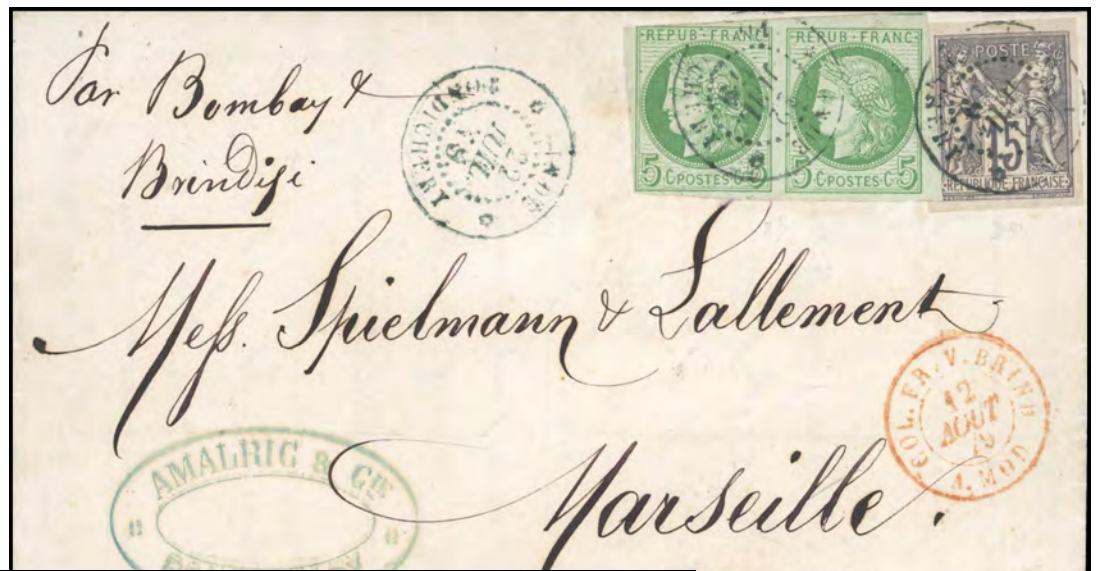 Par Bombay &
Brindisi
PONDICHERY
INDE
22
JUIL.
79
REPUB·FRANC·
5 C·POSTES·C·5
REPUB·FRANC·
5 C·POSTES·C·5
POSTE
15
REPUBLIQUE FRANCAISE
Mess. Spielmann & Lallement
COL. FR. V. BRIND
12
AOUT
79
A. MOD
Marseille.
AMALRIC & Cie